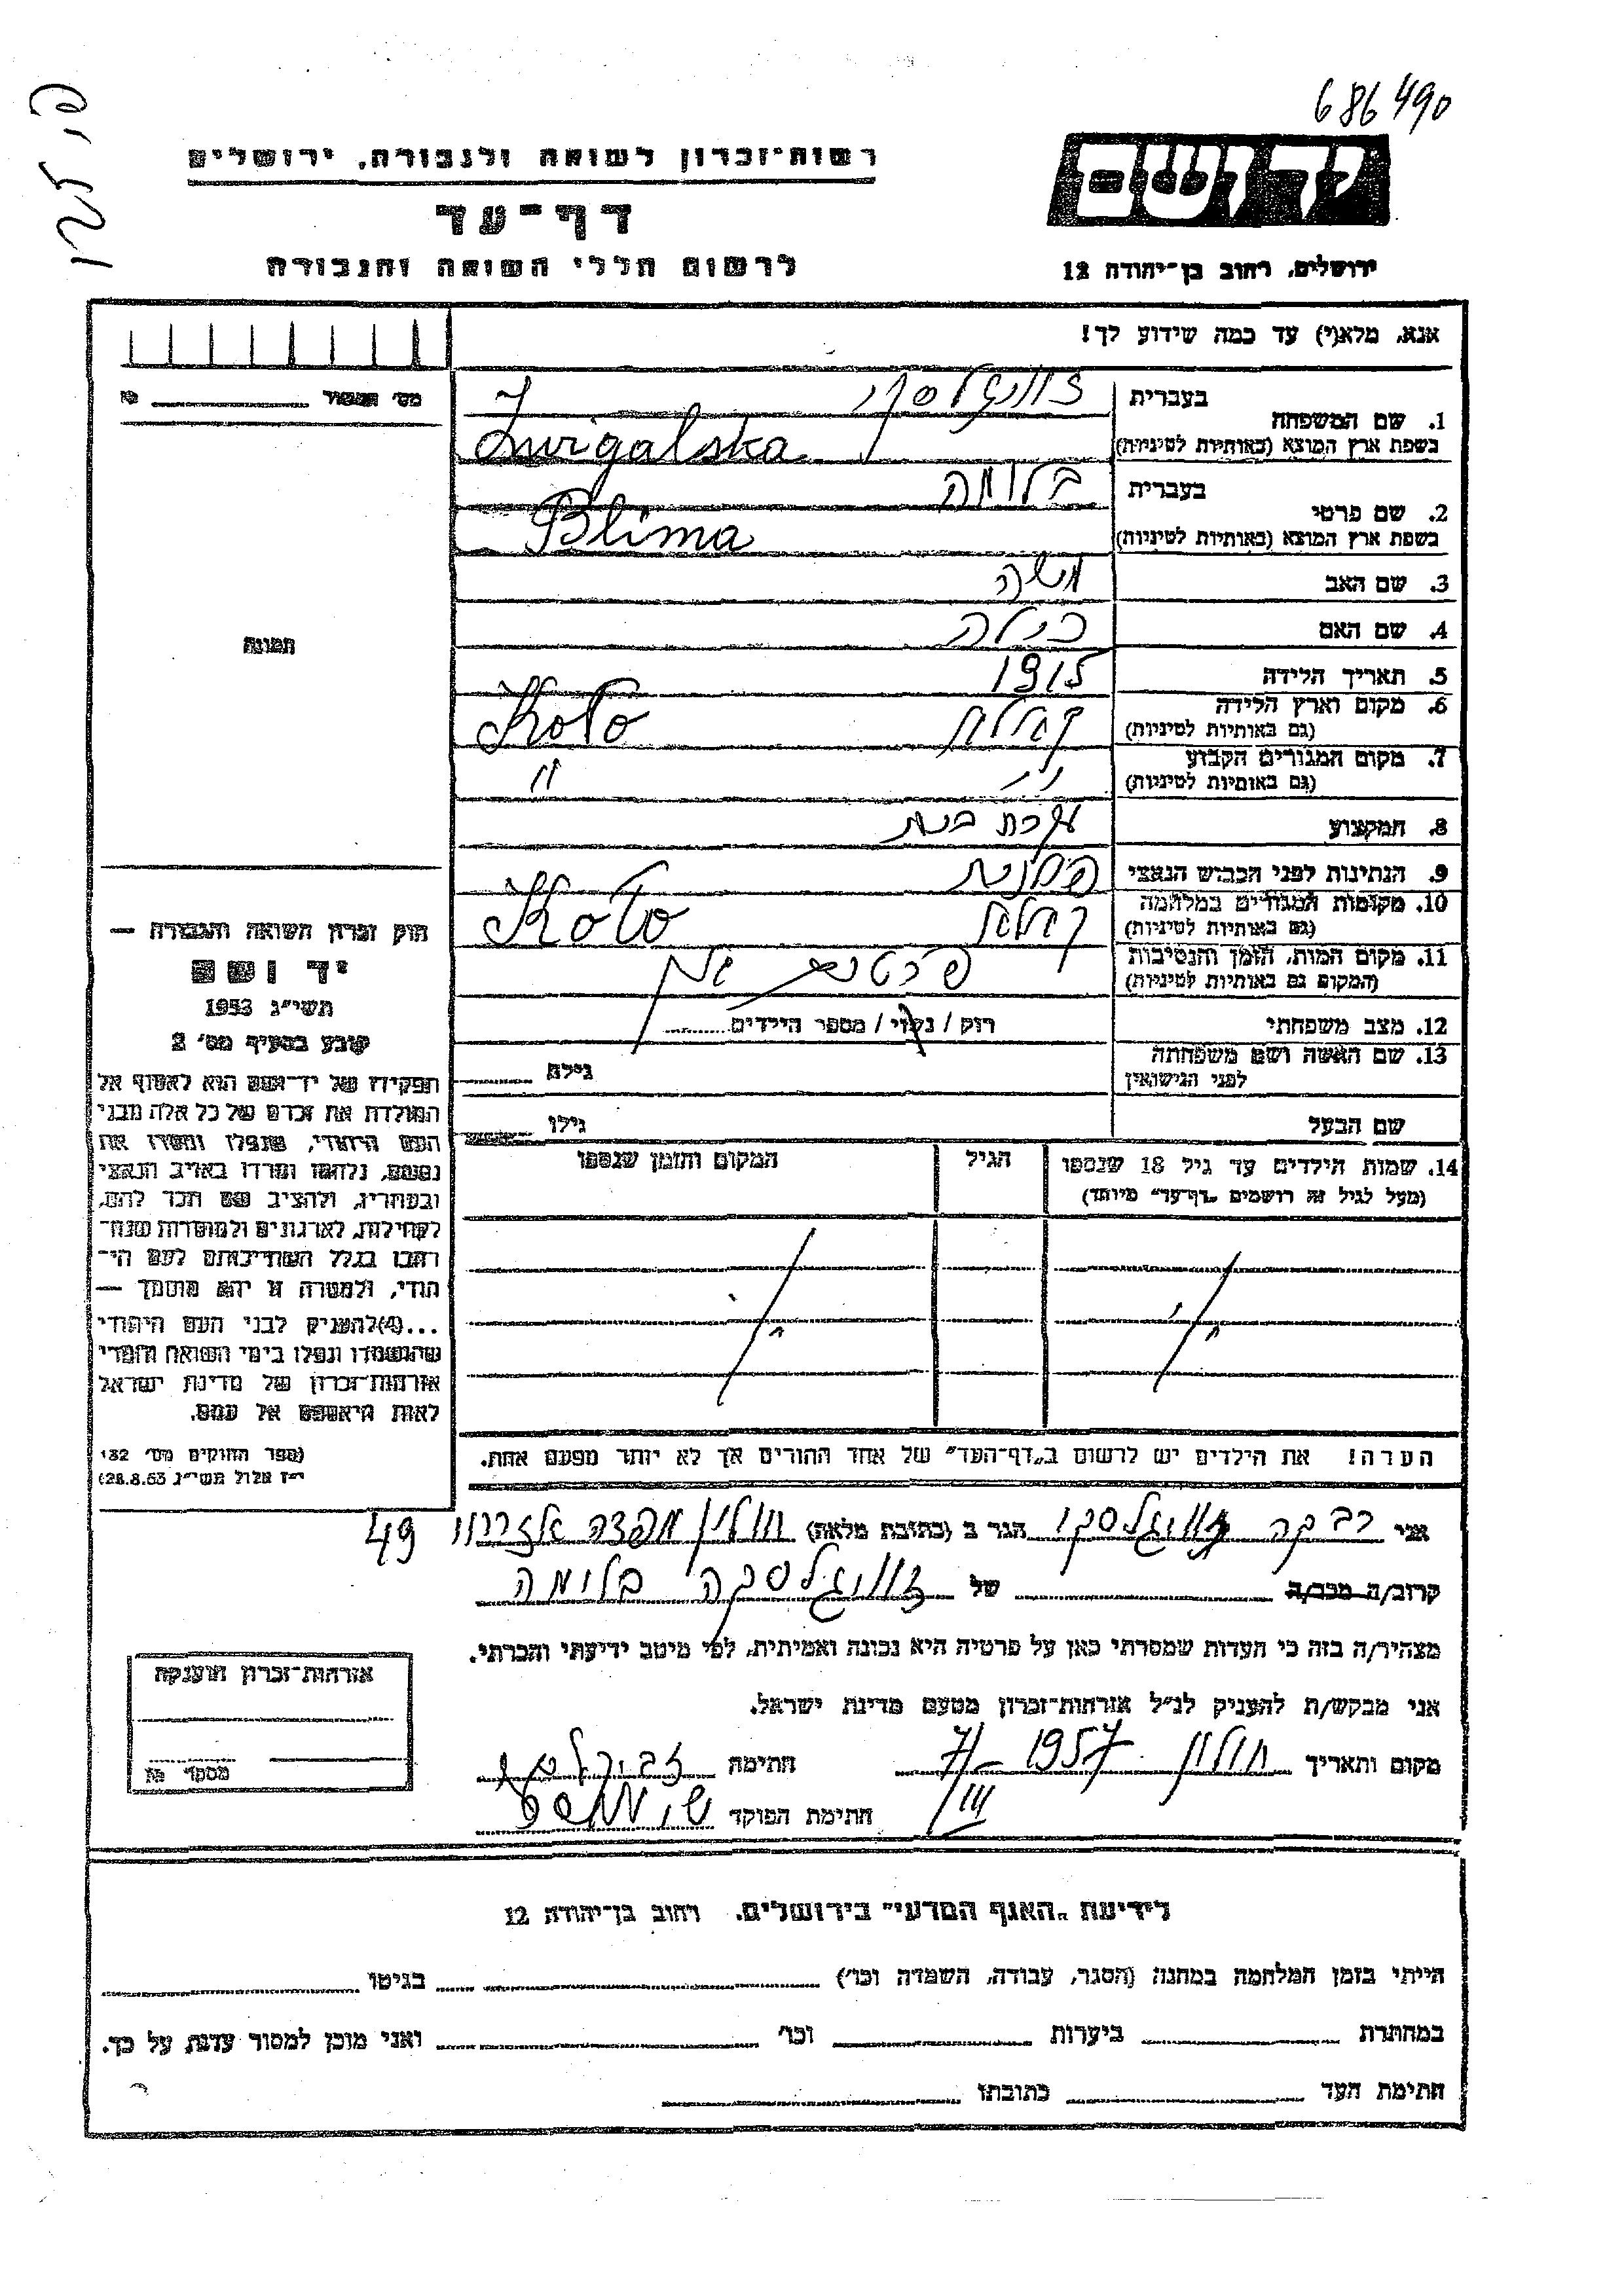 686490
יד ושם
רשות־זכרון לשואה ולגבורה, ירושלים
דף־עד
לרשום חללי השואה והגבורה
ירושלים, רחוב בן־יהודה 12
אנא, מלא(י) עד כמה שידוע לך!
1. שם המשפחה
בעברית
בשפת ארץ המוצא (באותיות לטיניות) Zwigalska
2. שם פרטי
בעברית בלומה
בשפת ארץ המוצא (באותיות לטיניות) Blima
3. שם האב משה
4. שם האם
5. תאריך הלידה 1915
6. מקום וארץ הלידה
(גם באותיות לטיניות) Koło
7. מקום המגורים הקבוע
(גם באותיות לטיניות) "
8. המקצוע עקרת בית
9. הנתינות לפני הכבוש הנאצי
10. מקומות המגורים במלחמה
(גם באותיות לטיניות) Koło
11. מקום המות, הזמן והנסיבות
(המקום גם באותיות לטיניות)
12. מצב משפחתי רוק / נשוי / מספר הילדים
13. שם האשה ושם משפחתה
לפני הנישואין
גילה
שם הבעל גילו
14. שמות הילדים עד גיל 18 שנספו הגיל המקום והזמן שנספו
(מעל לגיל זה רושמים „דף־עד” מיוחד)
הערה! את הילדים יש לרשום ב„דף־העד” של אחד ההורים אך לא יותר מפעם אחת.
מס׳ תמונה
חוק זכרון השואה והגבורה —
יד ושם
תשי״ג 1953
קובע בסעיף מס׳ 2
תפקידו של יד־ושם הוא לאסוף אל
המולדת את זכרם של כל אלה מבני
העם היהודי, שנפלו ומסרו את
נפשם, נלחמו ומרדו באויב הנאצי
ובעוזריו, ולהציב שם וזכר להם,
לקהילות, לארגונים ולמוסדות שנח־
רבו בגלל השתייכותם לעם הי־
הודי, ולמטרה זו יהא מוסמך —
...(4)להעניק לבני העם היהודי
שהושמדו ונפלו בימי השואה והמרי
אזרחות־זכרון של מדינת ישראל
לאות היאספם אל עמם.
(ספר החוקים מס׳ 132
י״ז אלול תשי״ג 28.8.53)
אני רבקה הגר ב (כתובת מלאה) חולון 49
קרוב/ה מכר/ה של בלומה
מצהיר/ה בזה כי העדות שמסרתי כאן על פרטיה היא נכונה ואמיתית, לפי מיטב ידיעתי והכרתי.
אני מבקש/ת להעניק לנ״ל אזרחות־זכרון מטעם מדינת ישראל.
מקום ותאריך חולון 1957 חתימה
חתימת הפוקד
אזרחות־זכרון הוענקה
מספר
לידיעת „האגף המדעי” בירושלים, רחוב בן־יהודה 12
הייתי בזמן המלחמה במחנה (הסגר, עבודה, השמדה וכו׳) בגיטו
במחתרת ביערות וכו׳ ואני מוכן למסור עדות על כך.
חתימת העד כתובתו